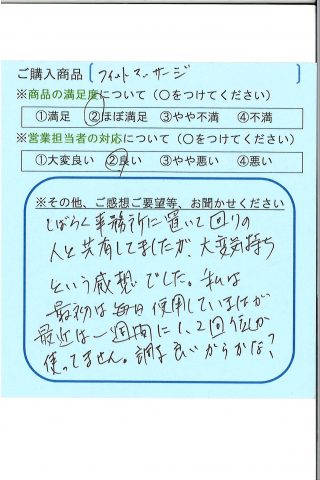 ご購入商品〔フィットマッサージ〕
※商品の満足度について（○をつけてください）
①満足　②ほぼ満足　③やや不満　④不満
※営業担当者の対応について（○をつけてください）
①大変良い　②良い　③やや悪い　④悪い
※その他、ご感想ご要望等、お聞かせください
しばらく事務所に置いて回りの
人と共有してましたが、大変気持ち
という感想でした。私は
最初は毎日使用していましたが
最近は一週間に1、2回位しか
使ってません。調子良いからかな？